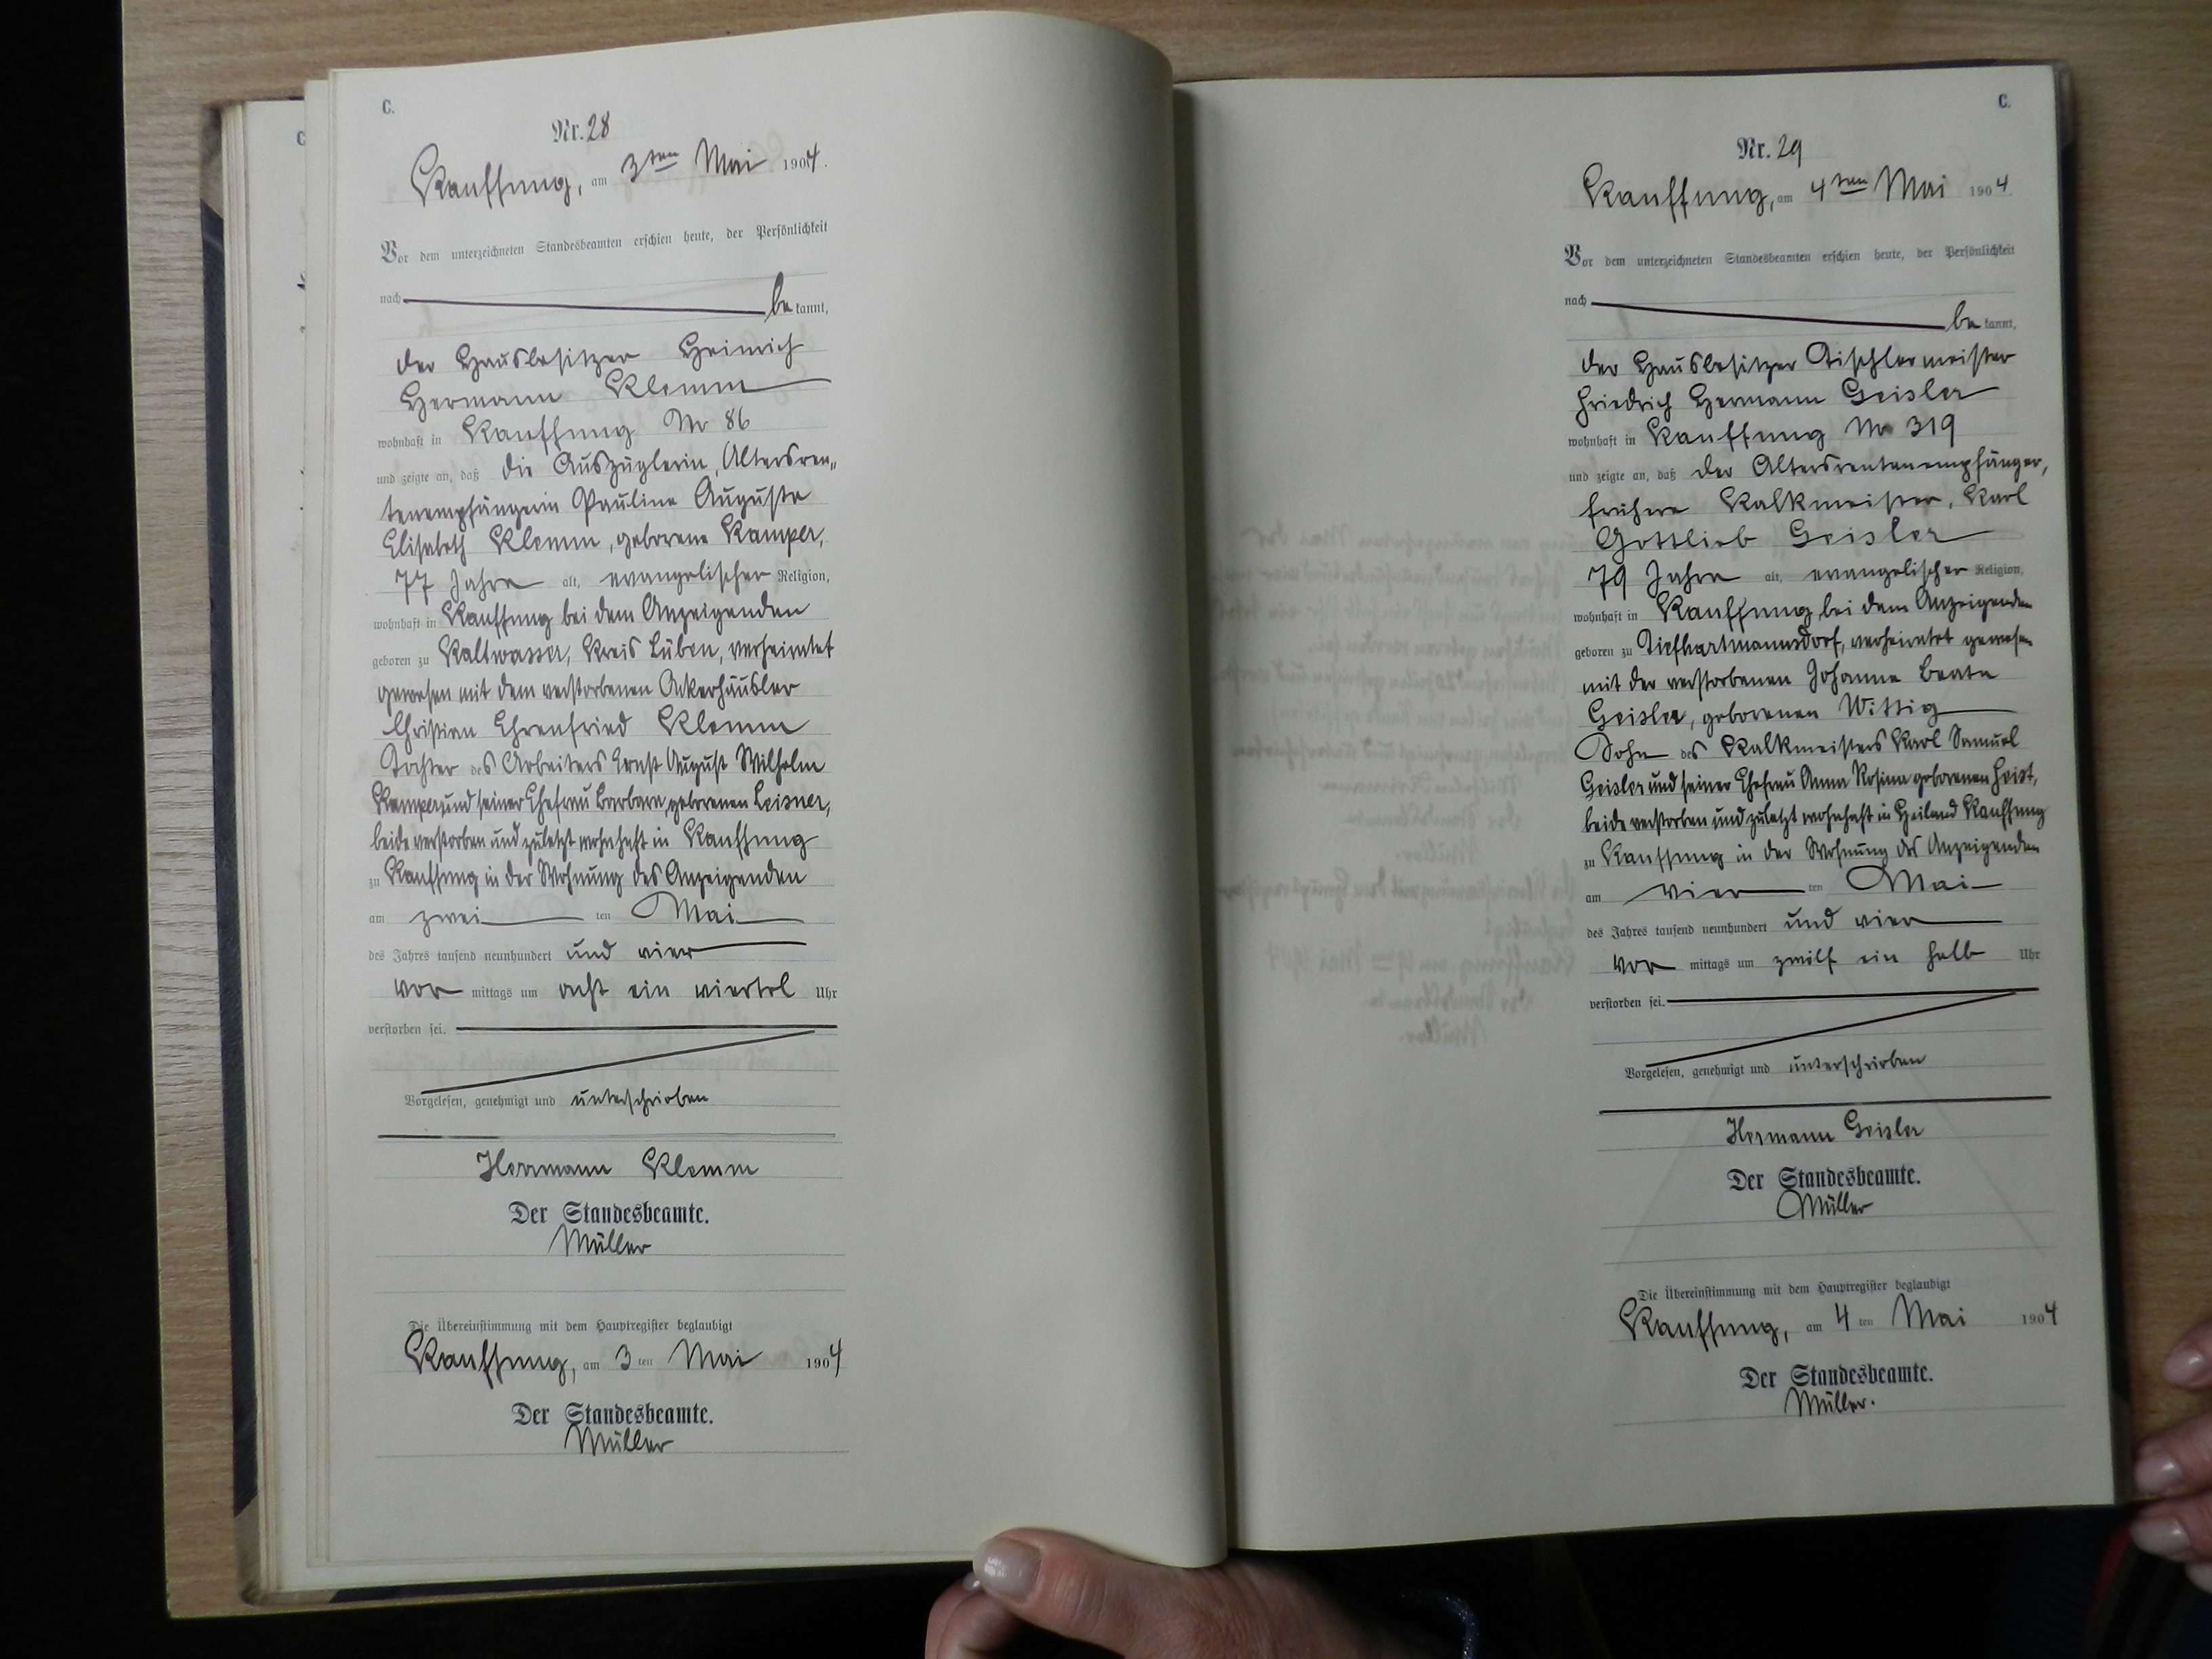 C.
Nr. 28
Kauffung, am 3ten Mai 1904.
Vor dem unterzeichneten Standesbeamten erschien heute, der Persönlichkeit
nach bekannt,
der Hausbesitzer Heinrich
Hermann Klemm
wohnhaft in Kauffung No 86
und zeigte an, daß die Auszüglerin, Altersren„
tenempfängerin Pauline Auguste
Elisabeth Klemm, geborene Kamper,
77 Jahre alt, evangelischer Religion,
wohnhaft in Kauffung bei dem Anzeigenden
geboren zu Kaltwasser, Kreis Lüben, verheiratet
gewesen mit dem verstorbenen Ackerhäusler
Christian Ehrenfried Klemm
Tochter des Arbeiters Ernst August Wilhelm
Kamper und seiner Ehefrau Barbara, geborenen Leisner,
beide verstorben und zuletzt wohnhaft in Kauffung
zu Kauffung in der Wohnung des Anzeigenden
am zwei ten Mai
des Jahres tausend neunhundert und vier
vor mittags um acht ein viertel Uhr
verstorben sei.
Vorgelesen, genehmigt und unterschrieben
Herrmann Klemm
Der Standesbeamte.
Müller
Die Übereinstimmung mit dem Hauptregister beglaubigt
Kauffung, am 3 ten Mai 1904
Der Standesbeamte.
Müller
C.
Nr. 29
Kauffung, am 4ten Mai 1904
Vor dem unterzeichneten Standesbeamten erschien heute, der Persönlichkeit
nach bekannt,
der Hausbesitzer Tischlermeister
Friedrich Hermann Geisler
wohnhaft in Kauffung No 319
und zeigte an, daß der Altersrentenempfänger,
frühere Kalkmeister, Karl
Gottlieb Geisler
79 Jahre alt, evangelischer Religion,
wohnhaft in Kauffung bei dem Anzeigenden
geboren zu Tiefhartmannsdorf, verheiratet gewesen
mit der verstorbenen Johanne Beate
Geisler, geborenen Wittig
Sohn des Kalkmeisters Karl Samuel
Geisler und seiner Ehefrau Anna Rosina geborenen Heist,
beide verstorben und zuletzt wohnhaft in Heiland Kauffung
zu Kauffung in der Wohnung des Anzeigenden
am vier ten Mai
des Jahres tausend neunhundert und vier
vor mittags um zwölf ein halb Uhr
verstorben sei.
Vorgelesen, genehmigt und unterschrieben
Hermann Geisler
Der Standesbeamte.
Müller
Die Übereinstimmung mit dem Hauptregister beglaubigt
Kauffung, am 4 ten Mai 1904
Der Standesbeamte.
Müller.